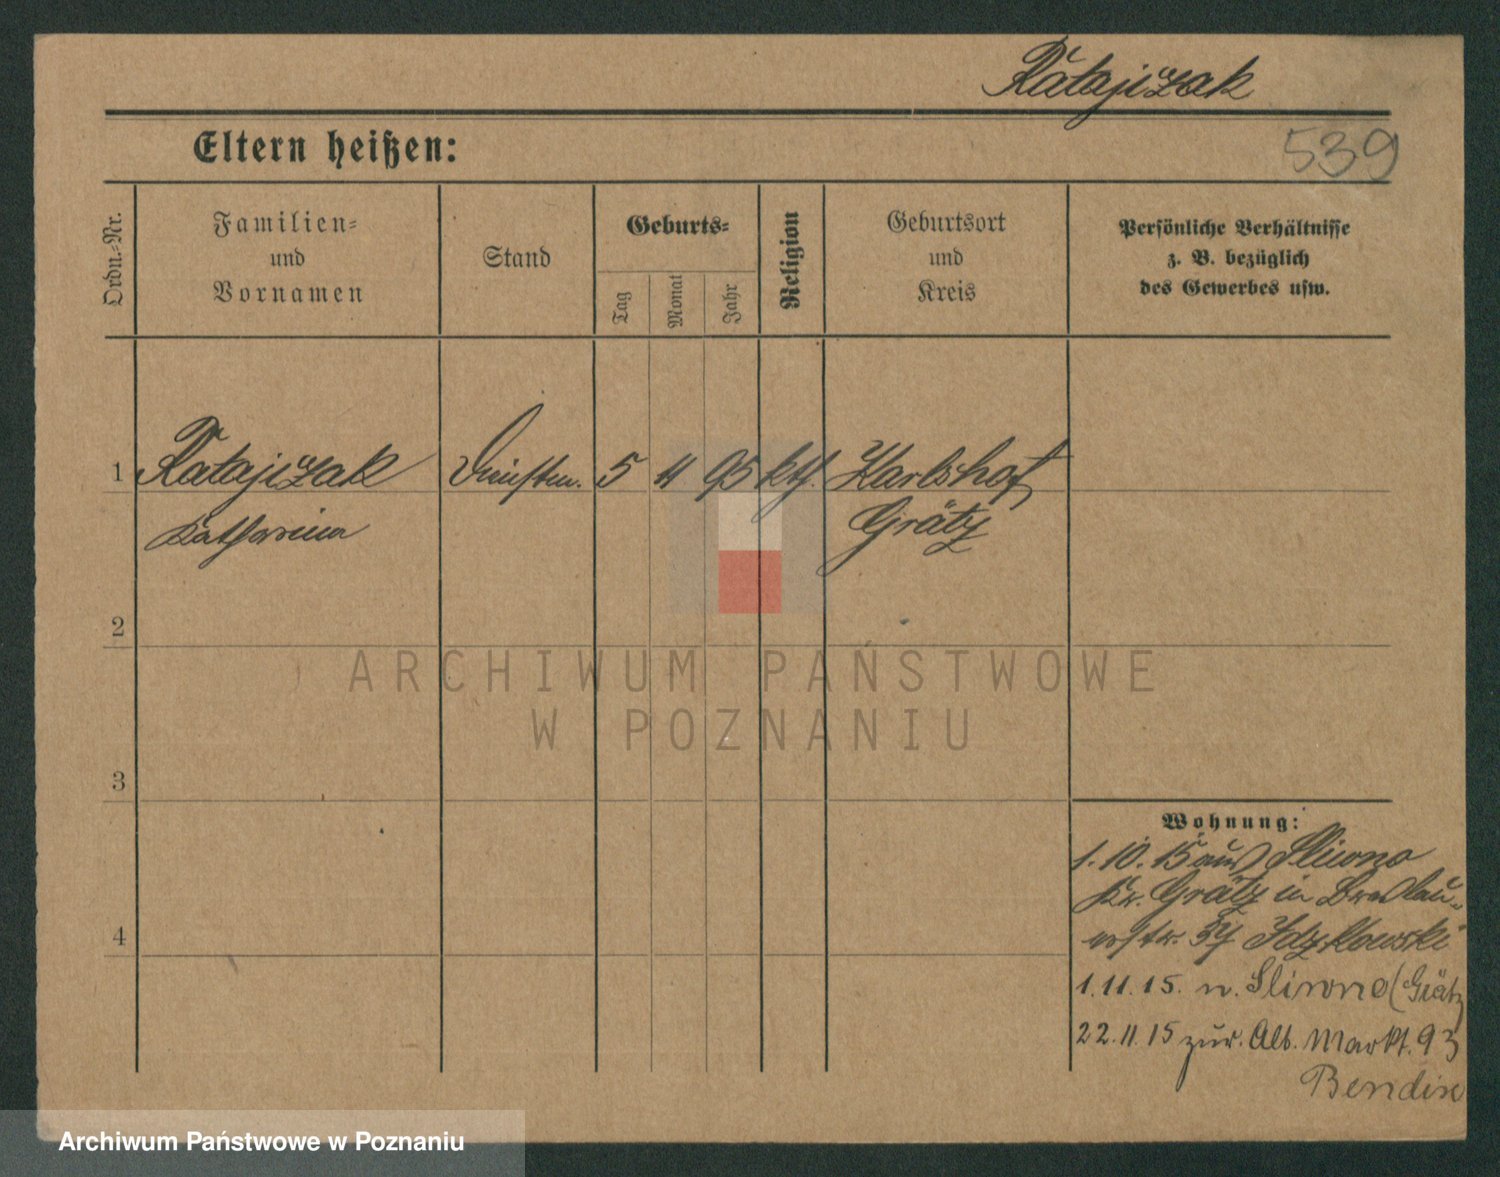 Ratajczak
539
Eltern heißen:
Ordn.-Nr.
Familien-
und
Vornamen
Stand
Geburts-
Tag
Monat
Jahr
Religion
Geburtsort
und
Kreis
Persönliche Verhältnisse
z. B. bezüglich
des Gewerbes usw.
1 Ratajczak 5 11 95 kth. Karlshof
Katharina Grätz
2
ARCHIWUM PAŃSTWOWE
W POZNANIU
3
Wohnung:
1.10.15 aus Sliwno
Kr. Grätz in Breslau-
erstr. Idzikowski
4
1.11.15. n. Sliwno (Grätz
22.11.15 zur. Alt. Markt. 93
Bendix
Archiwum Państwowe w Poznaniu